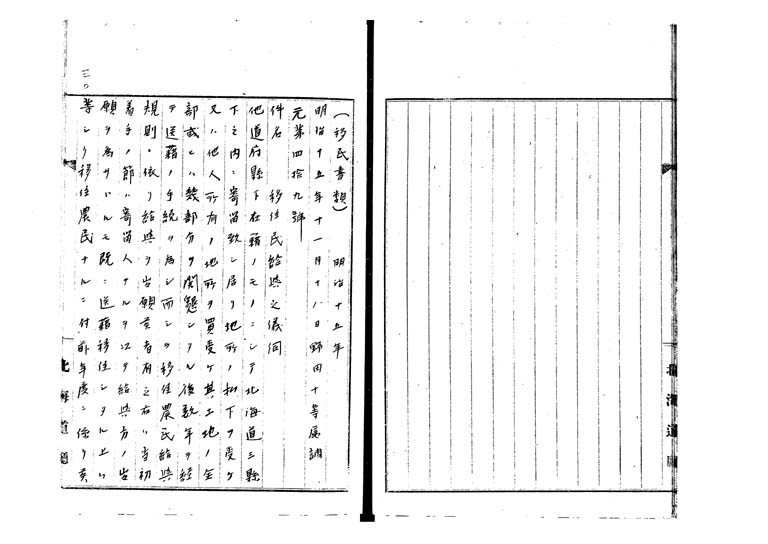 (移民書類) 明治十五年
明治十五年十一月十八日野田十等属調
元第四拾九號
件名 移住民給與之儀伺
他道府縣下在籍ノモノニシテ北海道三縣
下之内ニ寄留致シ居リ地所ノ拂下ヲ受ケ
又ハ他人所有ノ地所ヲ買受ケ其土地ノ全
部或ヒハ幾部分ヲ開墾シタル後数年ヲ経
テ送籍ノ手続ヲ為シ而シテ移住農民給與
規則ニ依リ給與ヲ出願セ者有之右ハ当初
着手ノ節ハ寄留人ナルヲ以テ給與方ノ出
願ヲ為サヽルモ既ニ送籍移住シタル上ハ
等シク移住農民ナルニ付前年度ニ係リ
三〇
北海道
北海道廳